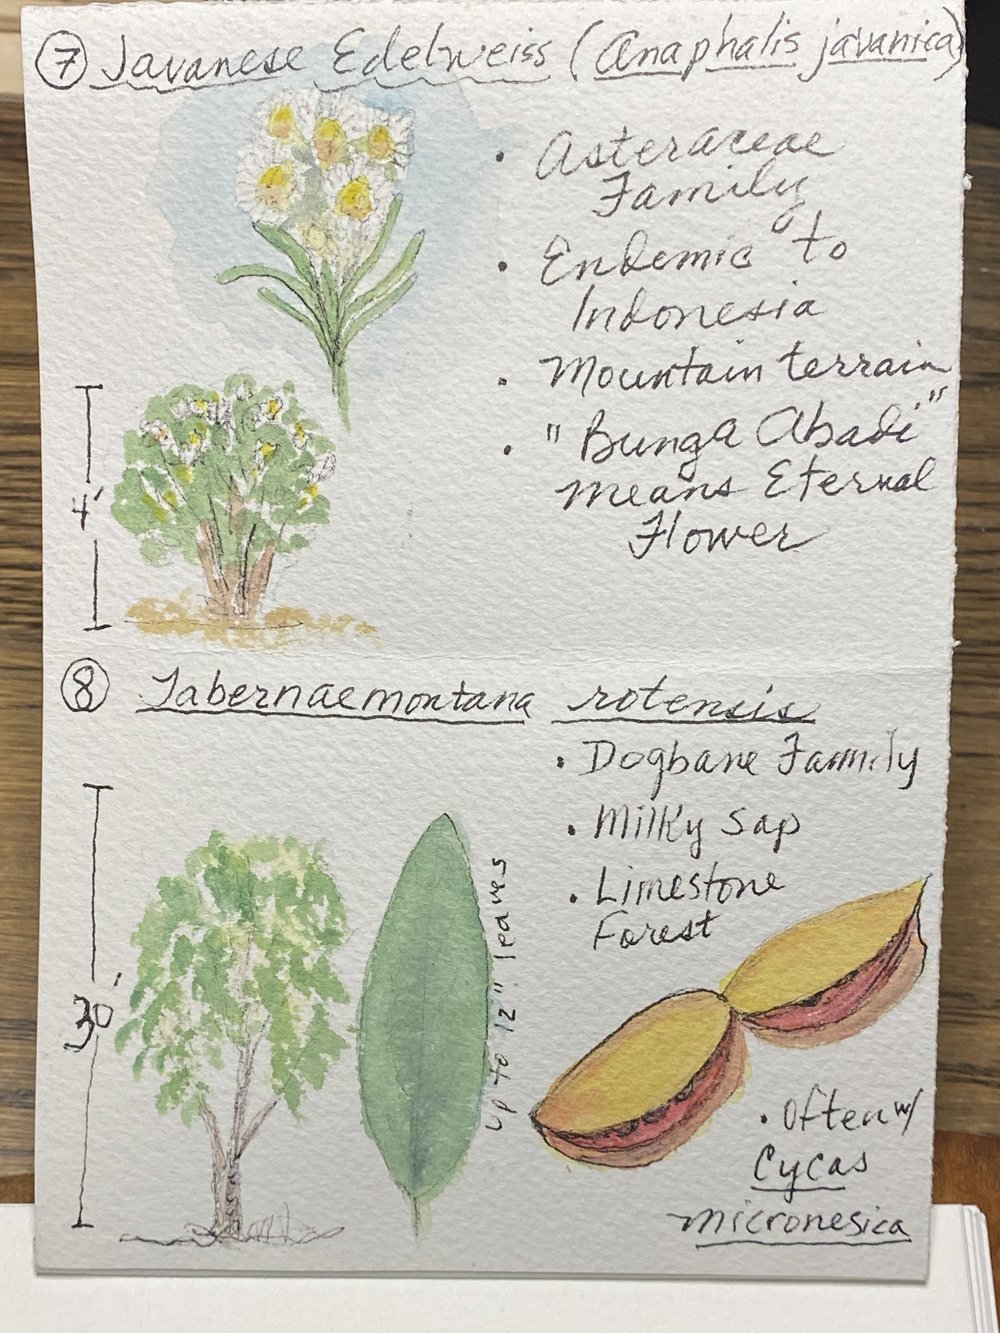 ⑦ Javanese Edelweiss (Anaphalis javanica)
• Asteraceae
Family
• Endemic to
Indonesia
• Mountain terrain
• "Bunga Abadi"
means Eternal
Flower
4'
⑧ Tabernaemontana rotensis
• Dogbane Family
• Milky Sap
• Limestone
Forest
30'
up to 12" leaves
• Often w/
Cycas
micronesica